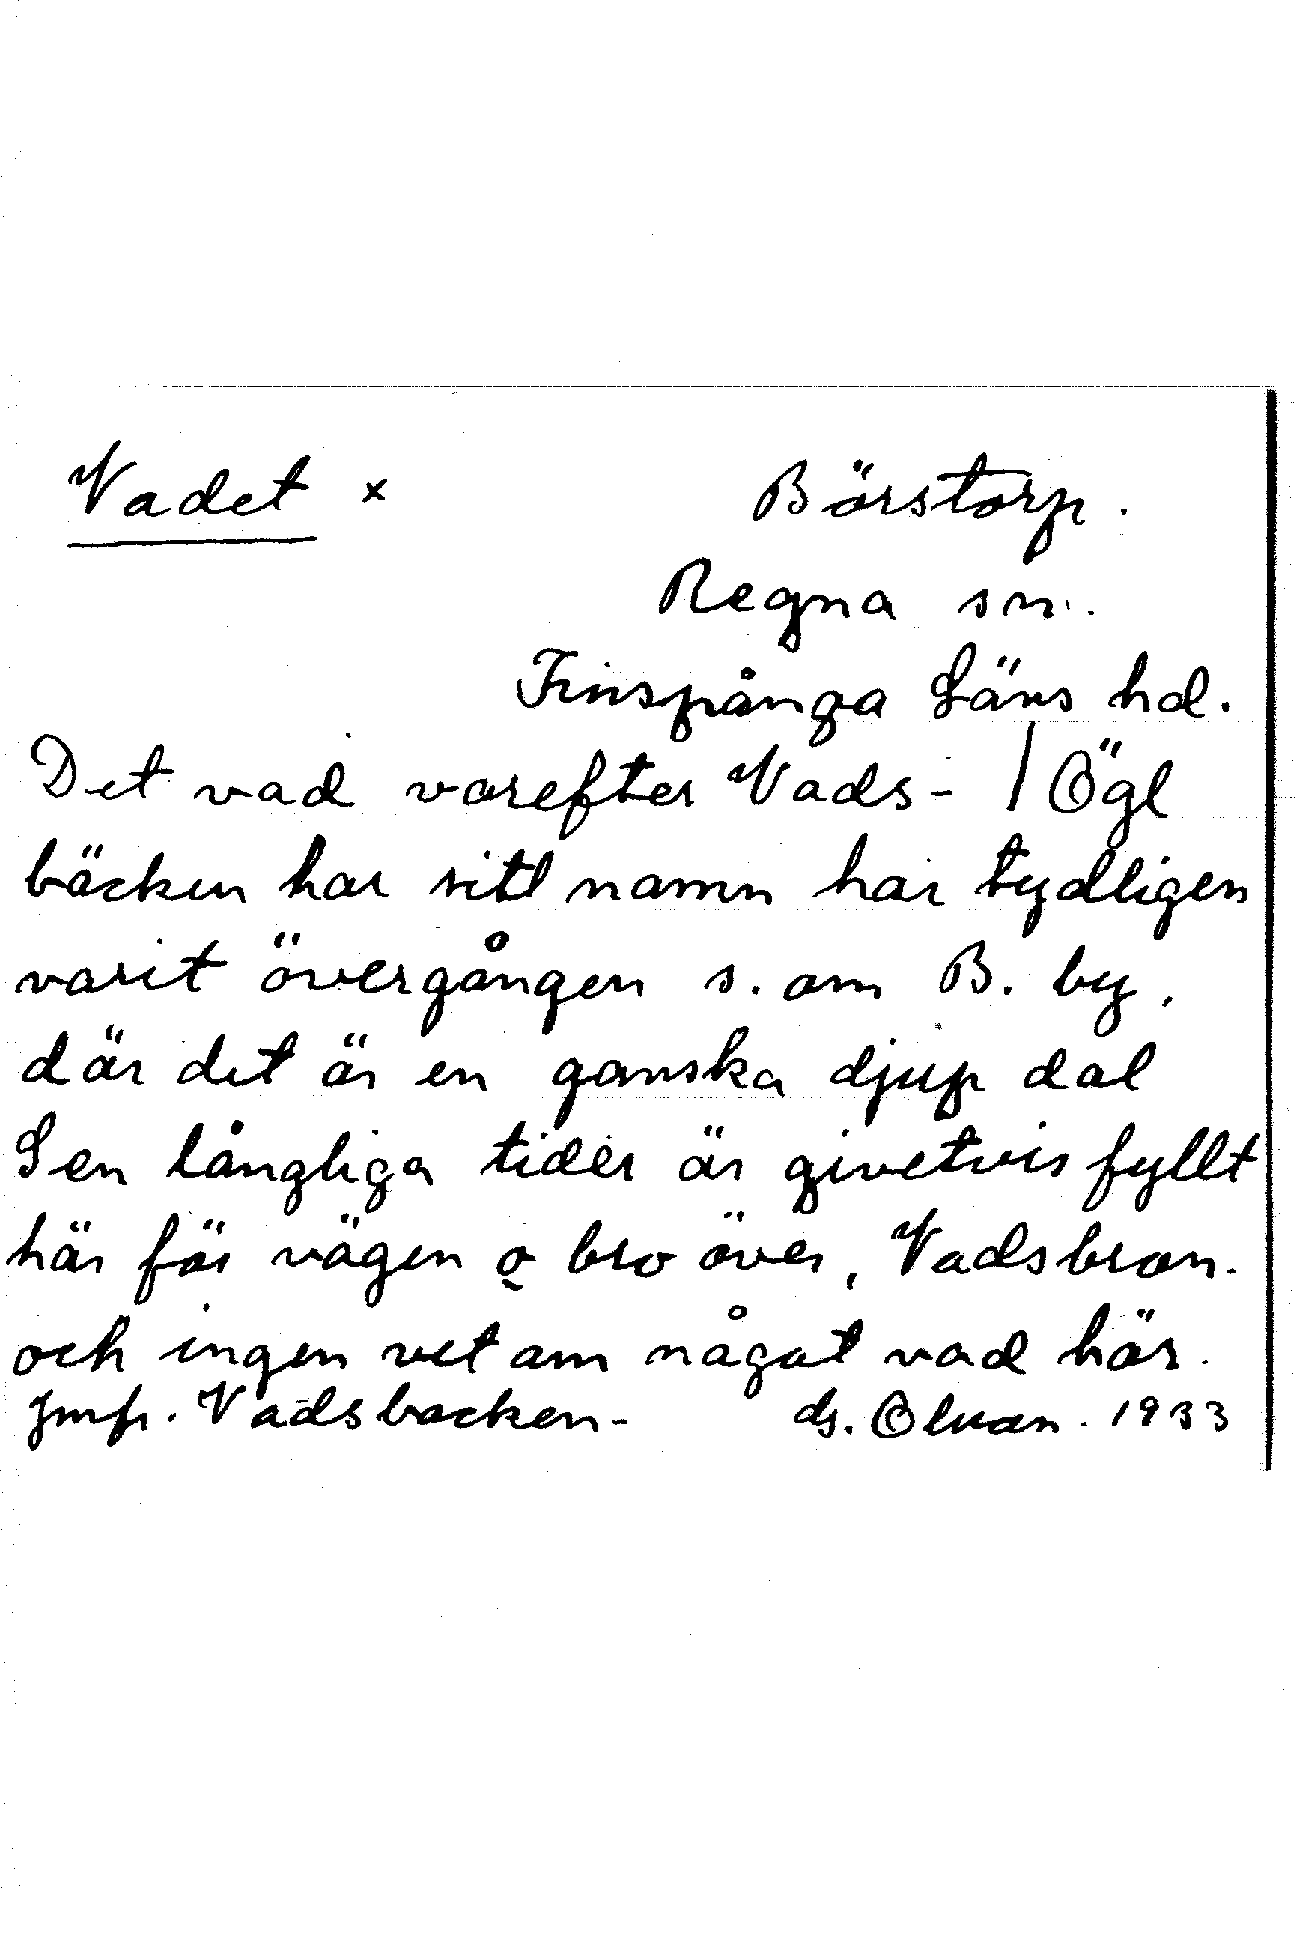 Vadet x Börstorp.
Regna sn.
Finspånga Läns hd.
Det vad varefter Vads- / Ögl
bäcken har sitt namn har tydligen
varit övergången s. om B. by,
där det är en ganska djup dal
Sen långliga tider är givetvis fyllt
här för vägen o bro över, Vadsbron.
och ingen vet om något vad här.
Jmfr. Vadsbacken- ds. Ölvan. 1933